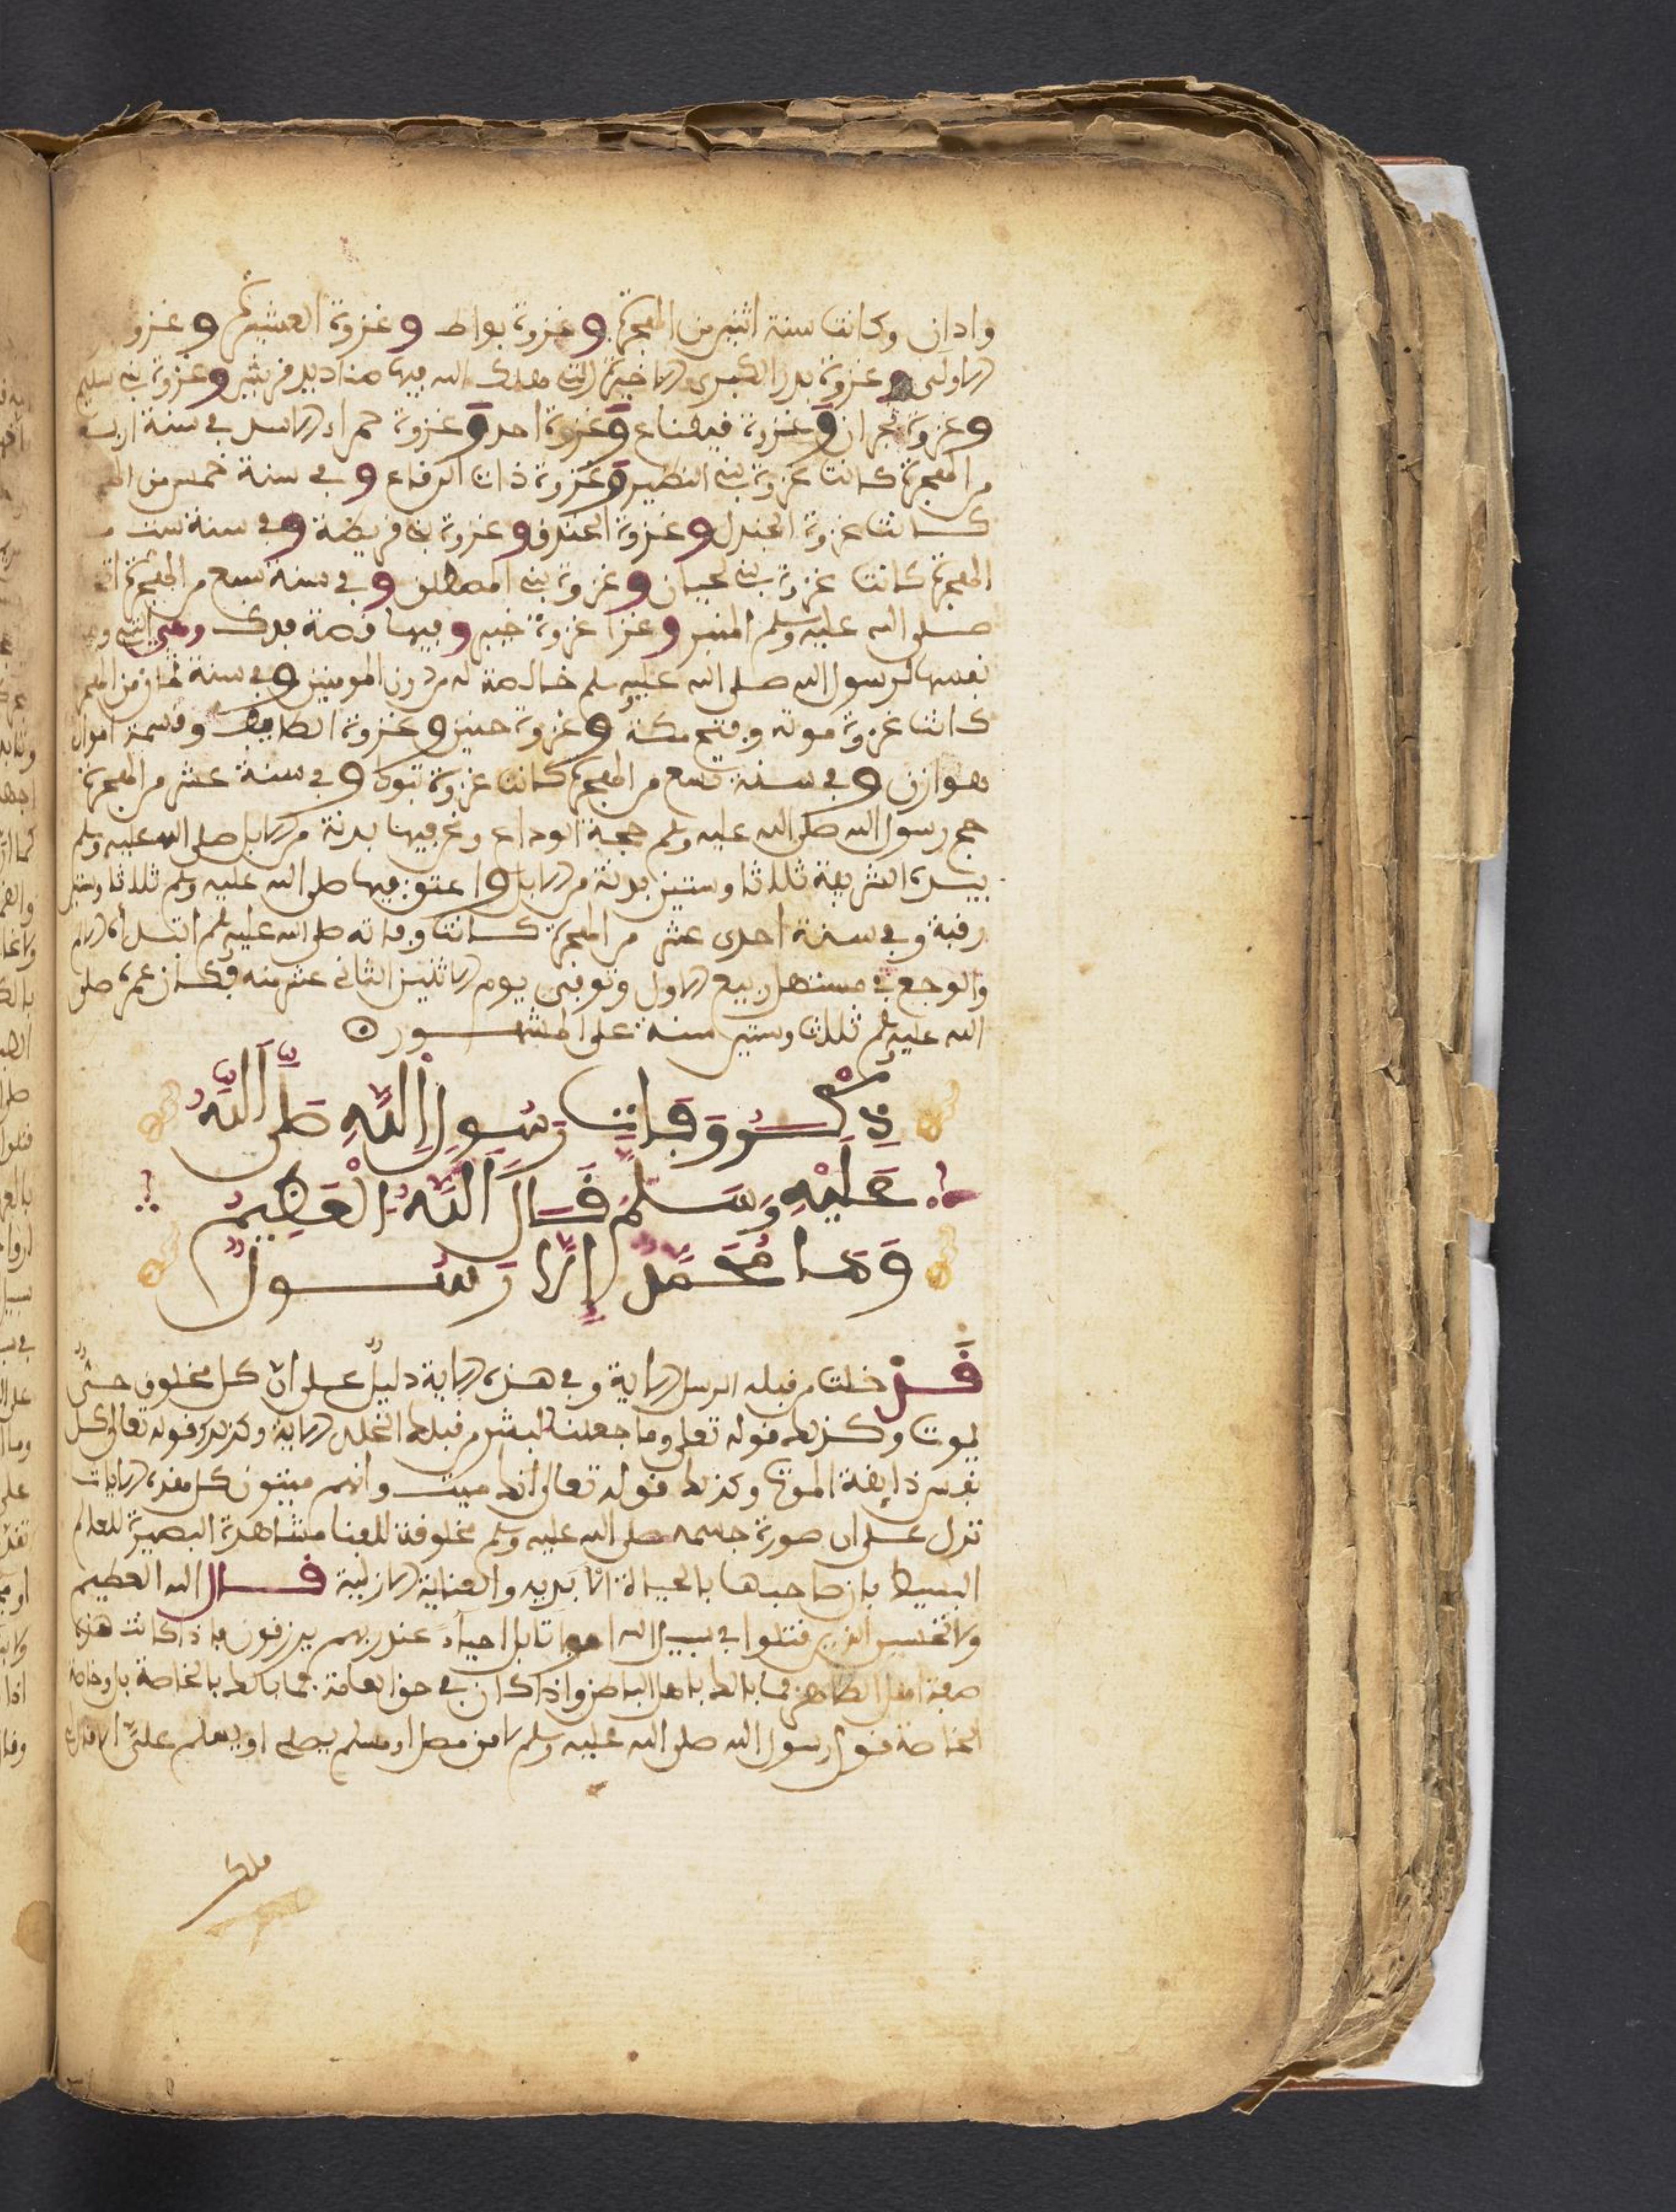 وادان وكانت سنة اثنين من الهجرة وغزوة بواط وغزوة العشيرة وغزو
الاولى وغزوة بدر الكبرى الاخيرة التي هلك الله فيها صناديد قريش وغزوة بني سليم
وغزوة نجران وغزوة قينقاع وغزوة احد وغزوة حمراء الاسد في سنة اربعة
من الهجرة كانت غزوة بني النظير وغزوة ذات الرقاع وفي سنة خمس من
كانت غزوة الجندل وغزوة الخندق وغزوة بني قريظة وفي سنة ست
الهجرة كانت غزوة بني لحيان وغزوة بني امصطلق وفي سنة سبع من الهجرة
صلى الله عليه وسلم المنبر وغزا غزوة خيبر وفيها قصة فدك وهي التي
نفسها لرسول الله صلى الله عليه سلم خالصة له من دون المومنين وفي سنة ثمان من
كانت غزوة موته وفتح مكة وغزوة حنين وغزوة الطايف وقسمة اموال
هوازن وفي سنة تسع من الهجرة كانت غزوة تبوك وفي سنة عشر من الهجرة
حج رسول الله صلى الله عليه وسلم حجة الوداع ونحر فيها بدنة من الابل صلى الله عليه وسلم
بيده الشريفة ثلاثا وستين بدنة من الابل واعتق فيها صلى الله عليه وسلم ثلاثا وستين
رقبة وفي سنة احدى عشر من الهجرة كانت وفاته صلى الله عليه وسلم ابتداه
والوجع في مستهل ربيع الاول وتوفي يوم الاثنين الثاني عشر منه فكان عمره صلى
الله عليه وسلم ثلاث وستين سنة على المشهور
ذِكْرُ وَفَاتِ رَسُولِ اللَّهِ صَلَّى اللَّهُ
عَلَيْهِ وَسَلَّمَ قَالَ اللَّهُ الْعَظِيمُ
وَمَا مُحَمَّدٌ إِلَّا رَسُولٌ
قَدْ خلت من قبله الرسل الاية وفي هذه الاية دليلٌ على انّ كل مخلوق حتى
يموت وكذلك قوله تعلى وما جعلنا لبشر من قبلك الخلد الاية وكذلك قوله تعالى كل
نفس ذايقة الموت وكذلك قوله تعالى انك ميت وانهم ميتون كل هذه الايات
تدل على ان صورة جسمه صلى الله عليه وسلم مخلوقة للفنا مشاهدة البصيرة للعالم
البسيط بان صاحبها بالحياة الابديه والعناية الازلية قال الله العظيم
ولا تحسبن الذين قتلوا في سبيل الله امواتا بل احياءٌ عند ربهم يرزقون فاذا كانت هذه
صفة اهل الظاهر فما بالك باهل الباطن واذا كان في حق العامة فما بالك بالخاصة بل وخاصة
الخاصة فقول رسول الله صلى الله عليه وسلم لا من مصل او مسلم يصلي او يسلم عليّ الا